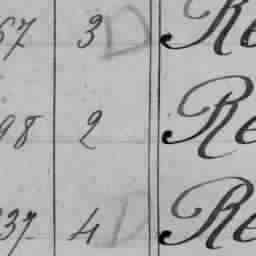 67 3 D Re
98 2 Re
37 4 D Re